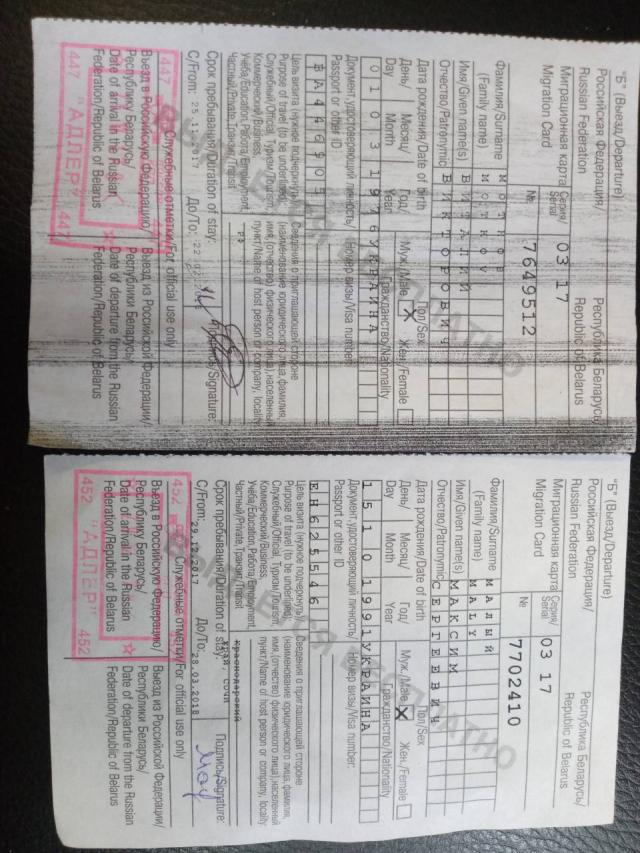 "Б" (Выезд/Departure)
Российская Федерация/
Russian Federation
Республика Беларусь/
Republic of Belarus
Миграционная карта
Migration Card
Серия/
Serial
03 17
№
7649512
Фамилия/Surname
(Family name)
Имя/Given name(s)
ВИТАЛИЙ
Отчество/Patronymic
ВИКТОРОВИЧ
Дата рождения/Date of birth
Пол/Sex:
День/ Месяц/ Год/
Day Month Year
Муж./Male X Жен./Female
01031976
Гражданство/Nationality
УКРАИНА
Документ, удостоверяющий личность/
Passport or other ID
Номер визы/Visa number:
Цель визита (нужное подчеркнуть)/
Purpose of travel (to be underlined):
Служебный/Official, Туризм/Tourism,
Коммерческий/Business,
Учёба/Education, Работа/Employment,
Частный/Private, Транзит/Transit
Сведения о приглашающей стороне
(наименование юридического лица, фамилия,
имя, (отчество) физического лица), населенный
пункт/Name of host person or company, locality
РФ
Срок пребывания/Duration of stay:
С/From: 25.11.2017
До/To:
Подпись/Signature:
Служебные отметки/For official use only
Въезд в Российскую Федерацию/
Республику Беларусь/
Date of arrival in the Russian
Federation/Republic of Belarus
Выезд из Российской Федерации/
Республики Беларусь/
Date of departure from the Russian
Federation/Republic of Belarus
447 447
"АДЛЕР"
447 447
"Б" (Выезд/Departure)
Российская Федерация/
Russian Federation
Республика Беларусь/
Republic of Belarus
Миграционная карта
Migration Card
Серия/
Serial
03 17
№
7702410
Фамилия/Surname
(Family name)
МАЛЫЙ
MALY
Имя/Given name(s)
МАКСИМ
Отчество/Patronymic
СЕРГЕЕВИЧ
Дата рождения/Date of birth
Пол/Sex:
День/ Месяц/ Год/
Day Month Year
Муж./Male X Жен./Female
15101991
Гражданство/Nationality
УКРАИНА
Документ, удостоверяющий личность/
Passport or other ID
Номер визы/Visa number:
ЕН625546
Цель визита (нужное подчеркнуть)/
Purpose of travel (to be underlined):
Служебный/Official, Туризм/Tourism,
Коммерческий/Business,
Учёба/Education, Работа/Employment,
Частный/Private, Транзит/Transit
Сведения о приглашающей стороне
(наименование юридического лица, фамилия,
имя, (отчество) физического лица), населенный
пункт/Name of host person or company, locality
краснодарский
край, сочи
Срок пребывания/Duration of stay:
С/From: 29.12.2017
До/To: 28.03.2018
Подпись/Signature:
Служебные отметки/For official use only
Въезд в Российскую Федерацию/
Республику Беларусь/
Date of arrival in the Russian
Federation/Republic of Belarus
Выезд из Российской Федерации/
Республики Беларусь/
Date of departure from the Russian
Federation/Republic of Belarus
452
"АДЛЕР"
452 452
БЕСПЛАТНО